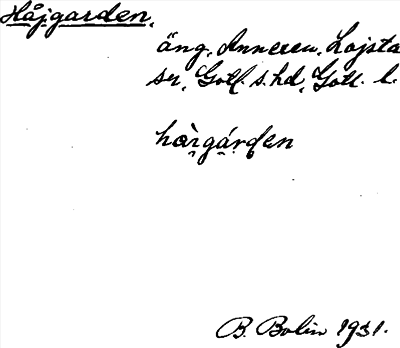 Håjgarden,
äng, Annexen, Lojsta
sn, Gotl. s. hd, Gotl. l.
B. Bolin 1931.